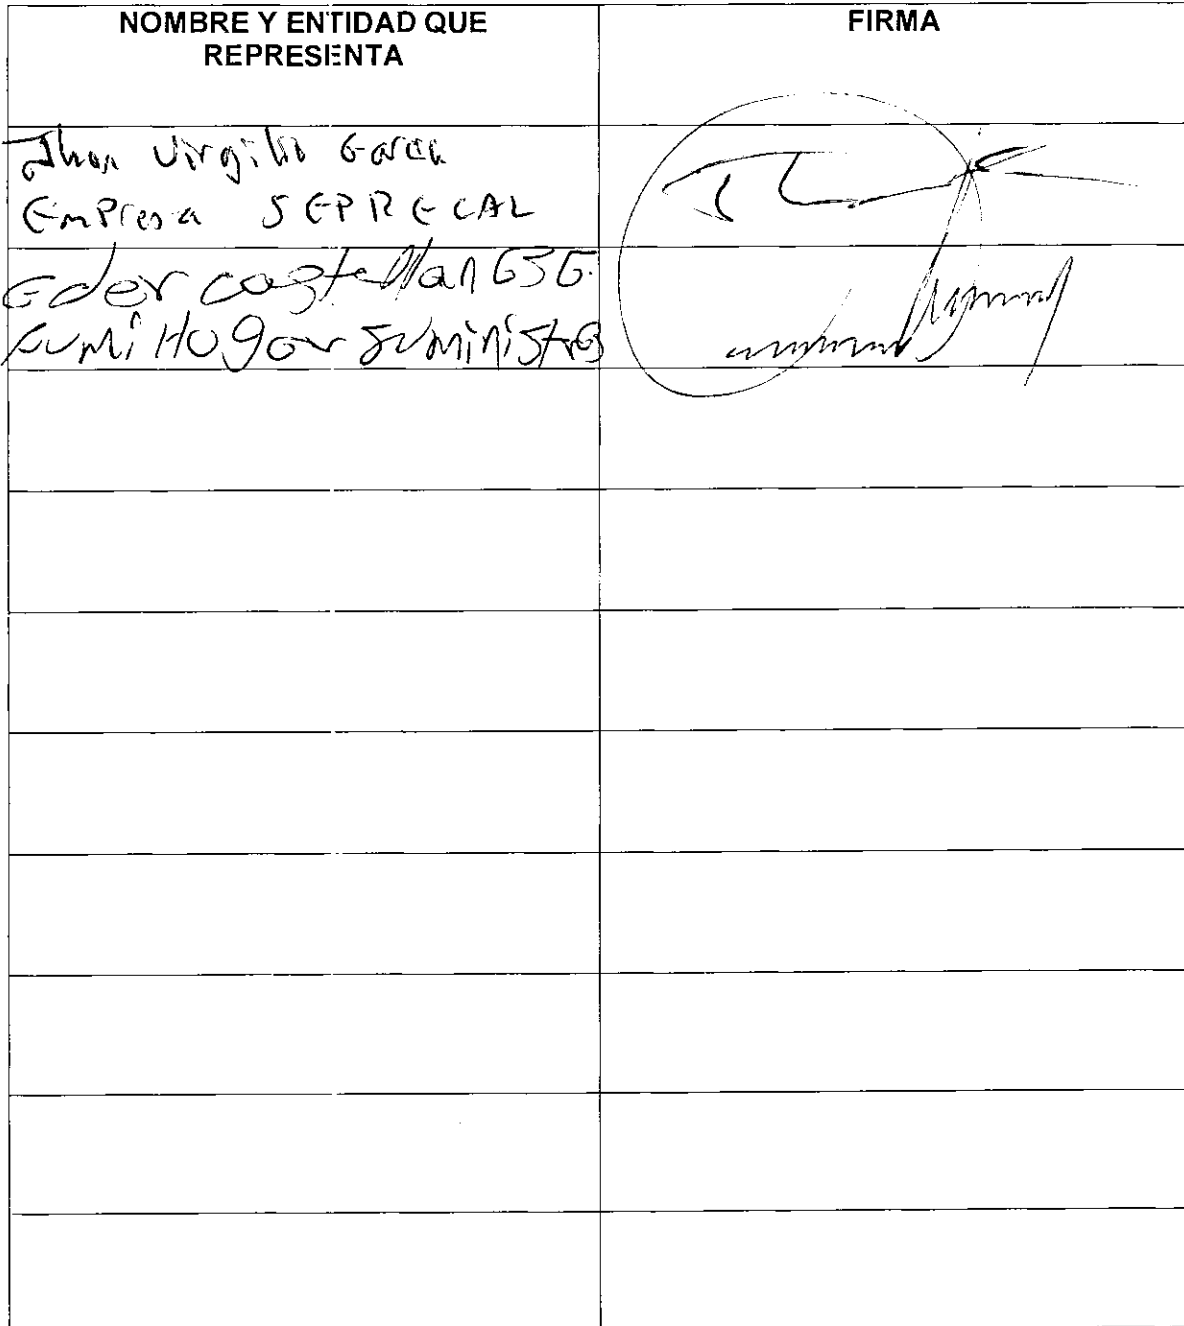 NOMBRE Y ENTIDAD QUE
REPRESENTA
FIRMA
Jhon Virgilio Garcia
Empresa SEPRECAL
Eder castellan
Fumi Hogar Suministros